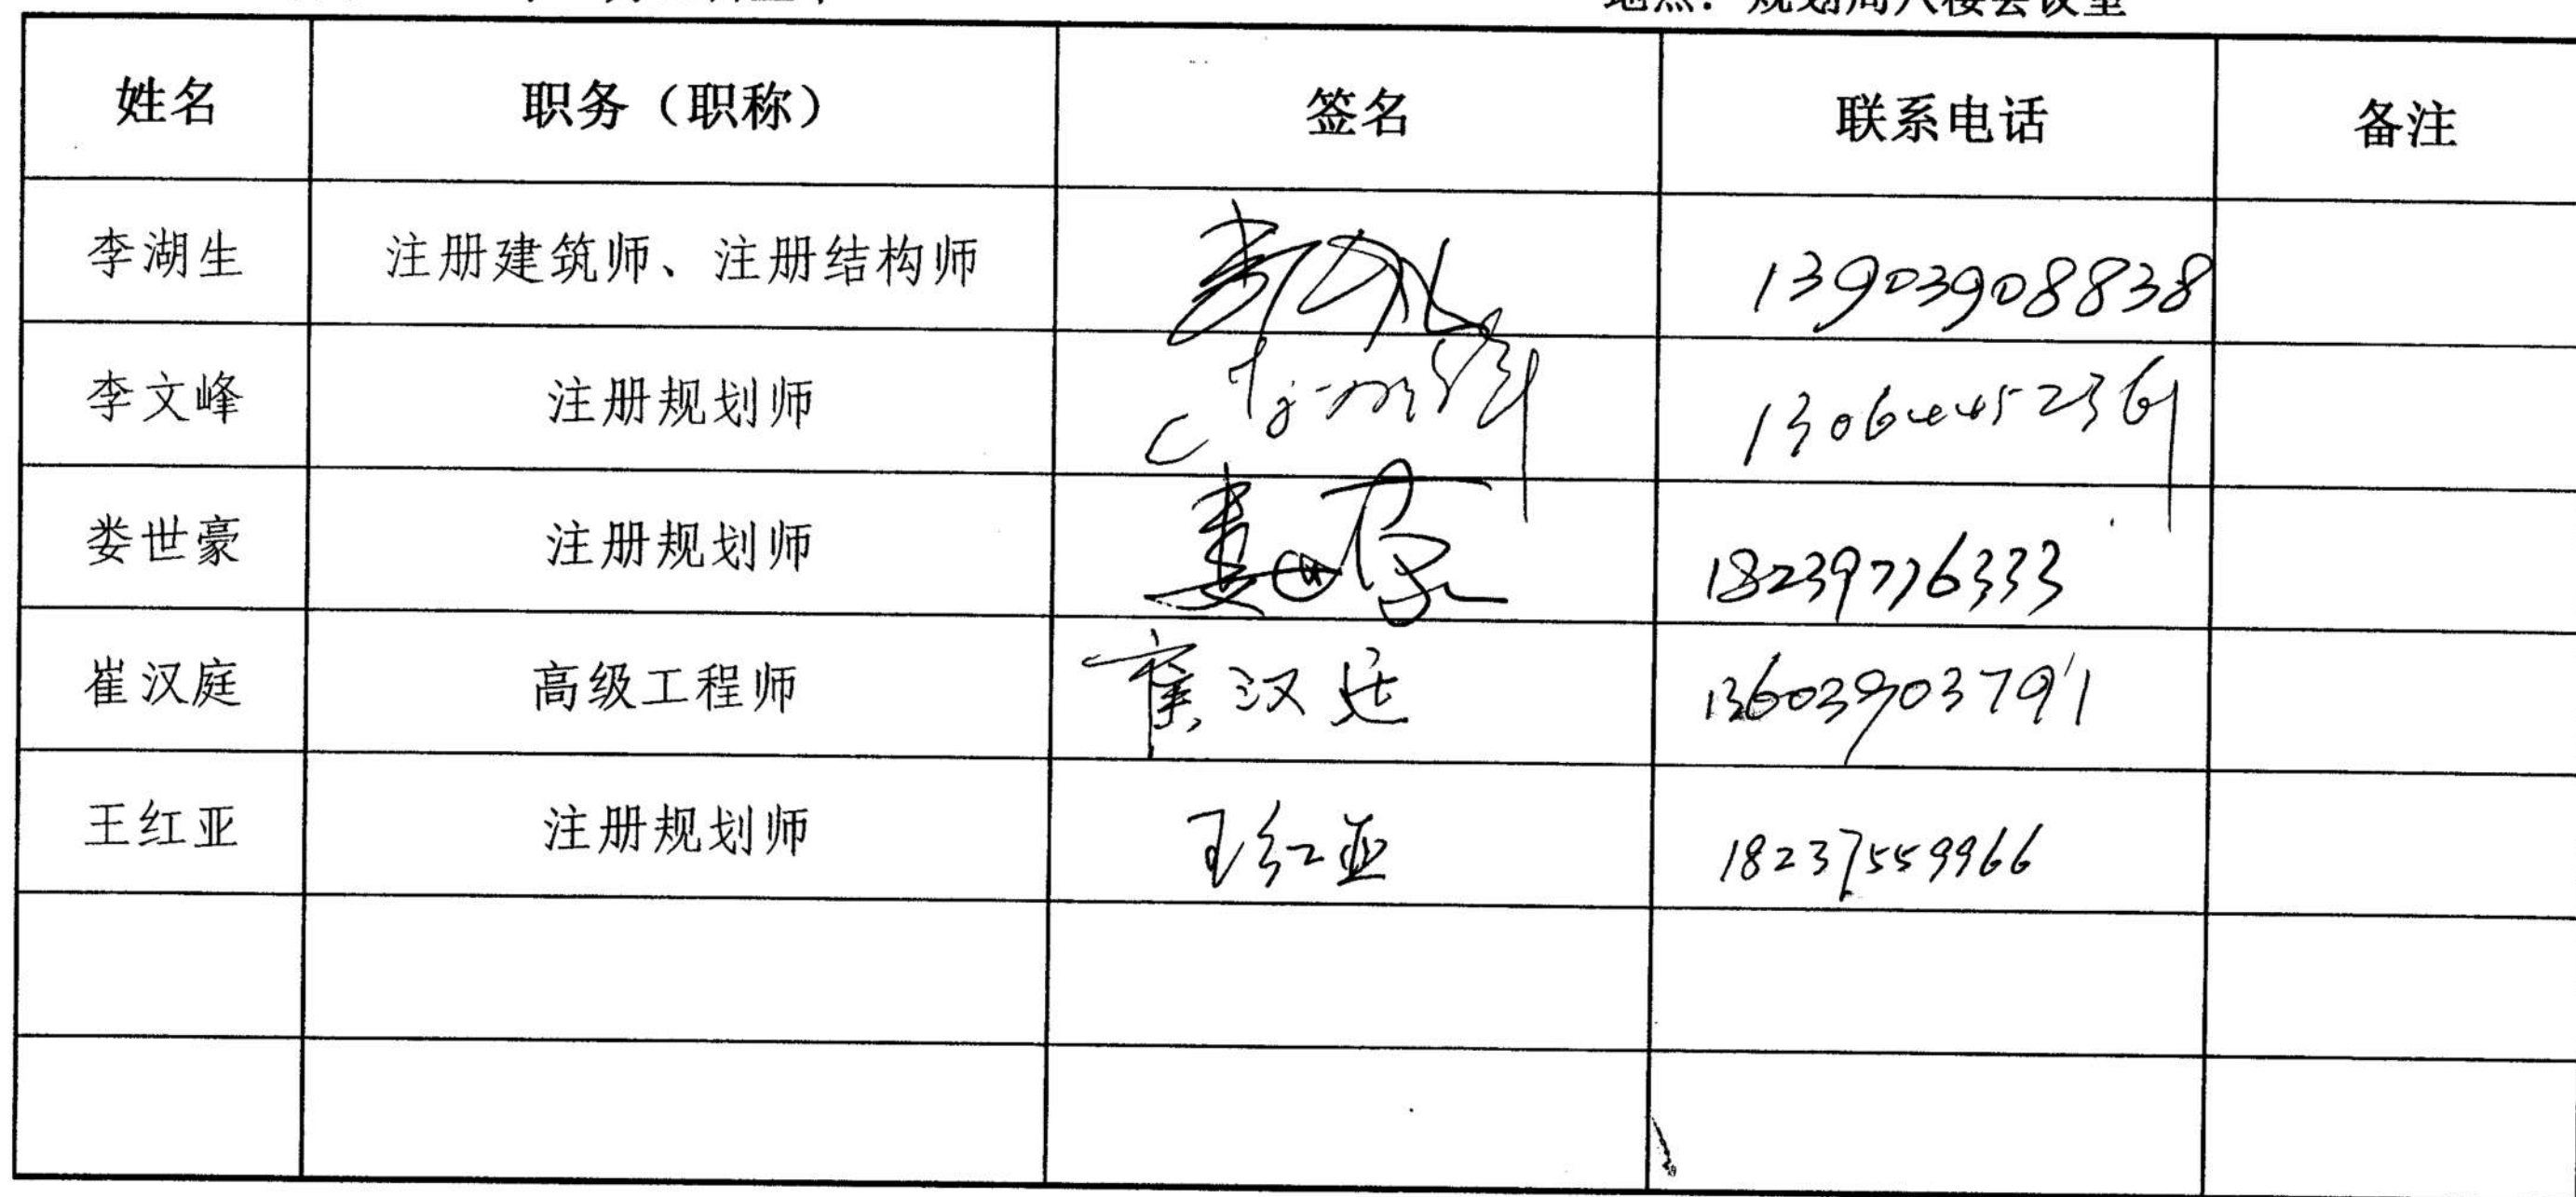 地点：规划局八楼会议室
姓名 职务（职称） 签名 联系电话 备注
李湖生 注册建筑师、注册结构师 13903908838
李文峰 注册规划师
娄世豪 注册规划师 娄世豪 18239776333
崔汉庭 高级工程师 崔汉廷 13603903791
王红亚 注册规划师 王红亚 18237559966